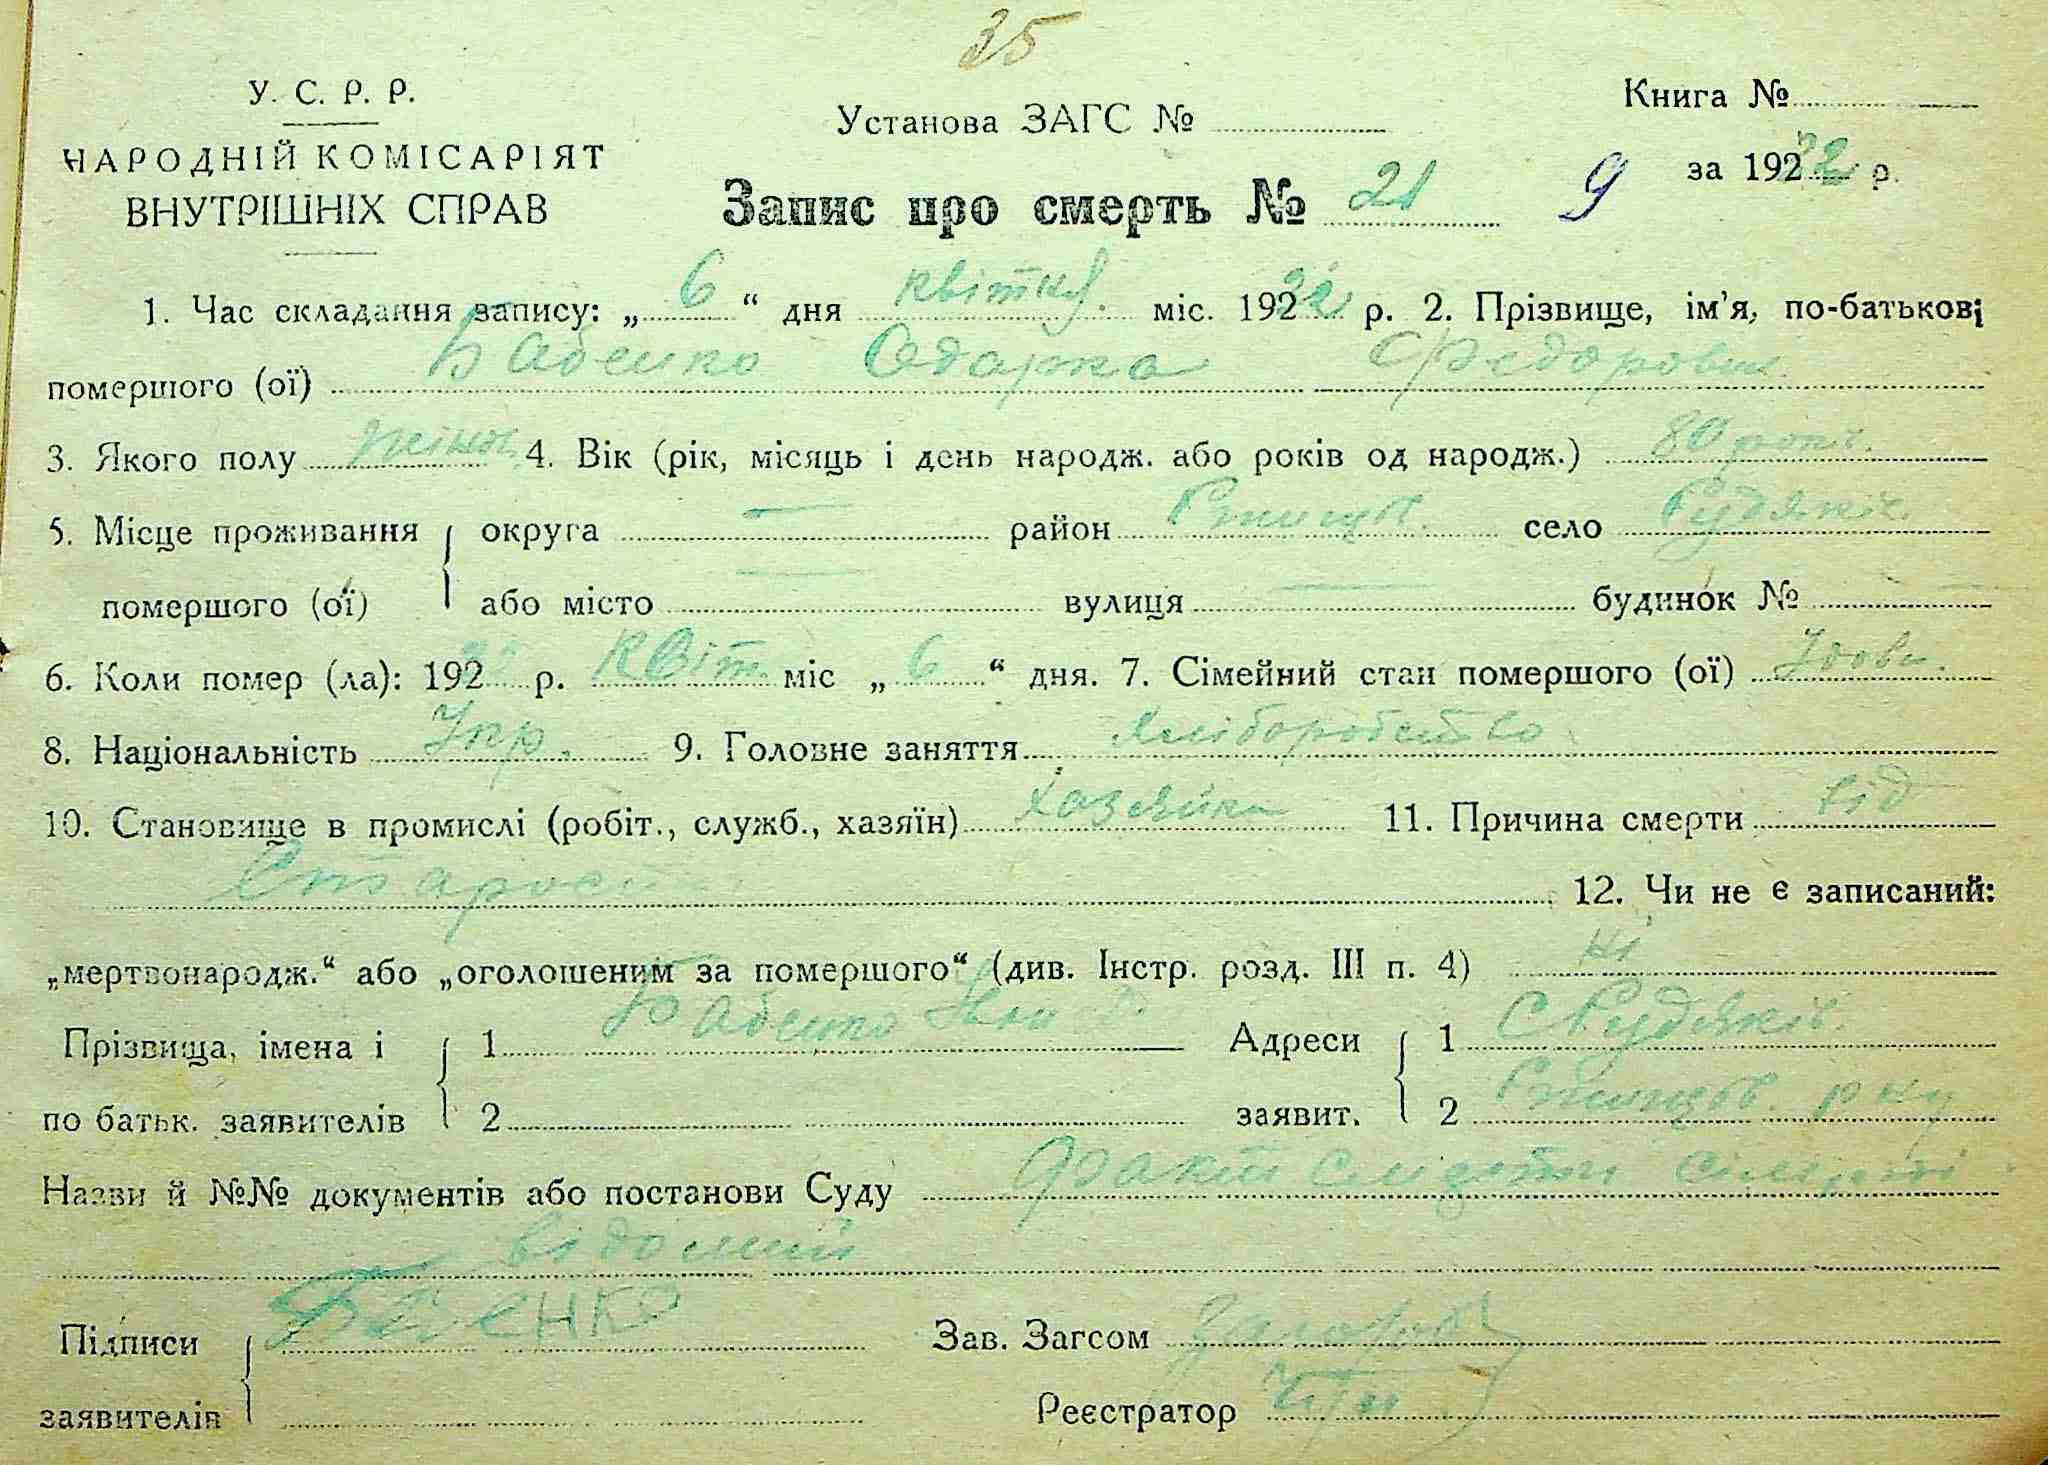 35
У. С. Р. Р.
НАРОДНІЙ КОМІСАРІЯТ
ВНУТРІШНІХ СПРАВ
Установа ЗАГС №
Книга №
за 1922 р.
Запис про смерть № 21 9
1. Час складання запису: „ 6 “ дня квітня міс. 192 р. 2. Прізвище, ім'я, по-батькові
Бабенко Одарка Федоровна
помершого (ої)
3. Якого полу жіноч. 4. Вік (рік, місяць і день народж. або років од народж.) 80 років
5. Місце проживання округа — район Ржищів. село Рудяків
помершого (ої) або місто — вулиця — будинок №
6. Коли помер (ла): 192 р. Квіт. міс „ 6 “ дня. 7. Сімейний стан помершого (ої) Удова.
8. Національність Укр. 9. Головне заняття хліборобство
10. Становище в промислі (робіт., служб., хазяїн) хазяйка 11. Причина смерти від
старости 12. Чи не є записаний:
„мертвонародж.“ або „оголошеним за помершого“ (див. Інстр. розд. III п. 4) ні
Прізвища, імена і 1 Бабенко Іван Адреси 1 с Рудяків.
по батьк. заявителів 2 заявит. 2 Ржищів. р ну
Назви й №№ документів або постанови Суду Факт смерти сільраді
відомий
Підписи Бабенко Зав. Загсом
заявителів Реєстратор